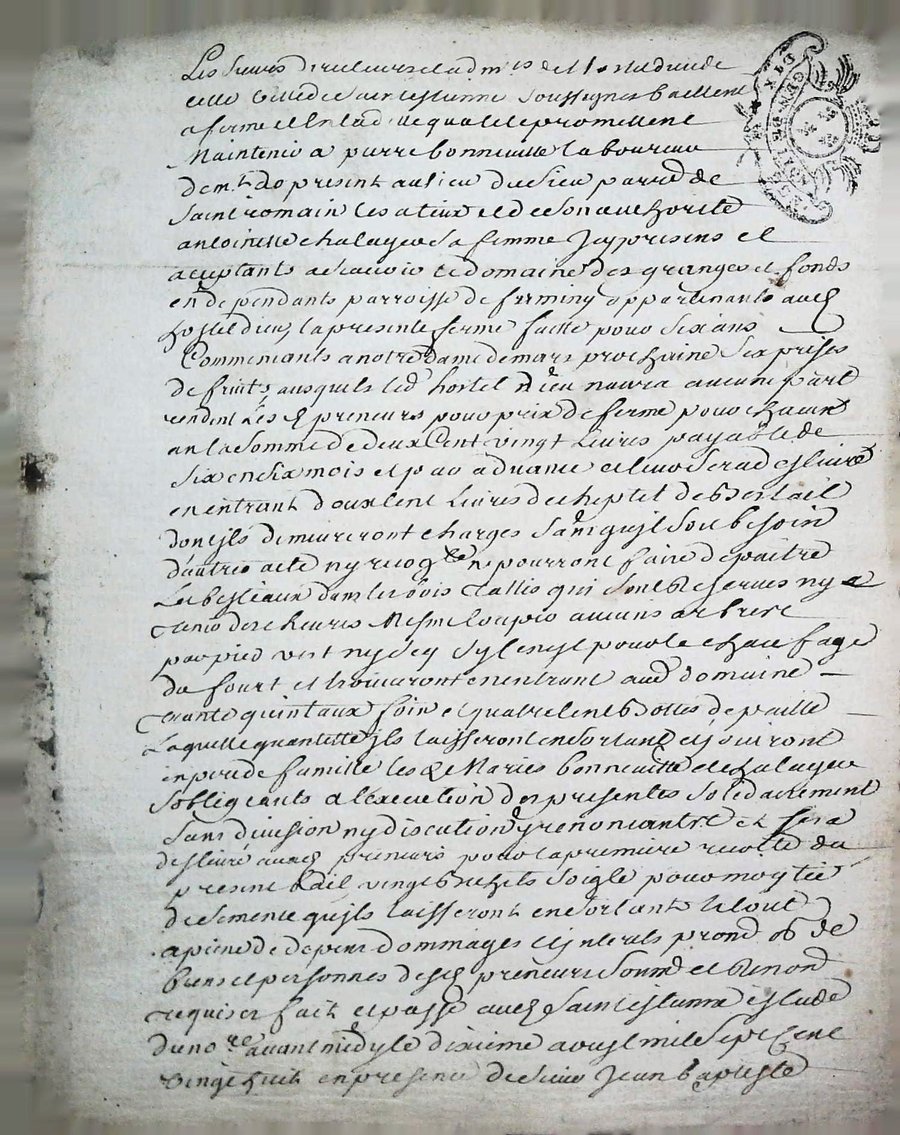 Les sieurs directeurs et adm.rs de l'hosteldieu de
cette ville de saint estienne soussignes baillent
a ferme et en lad. qualité promettent
Maintenir a pierre bonneville laboureur
dem.t de present au lieu du sieu parr.e de
saint romain les atieux et de son authorité
antoinette chalayer sa femme jcy presens et
aceptants asçavoir le domaine des granges et fonds
en dependants parroisse de firminy appartenants aud.
hosteldieu, la presente ferme faitte pour six ans
Commencants a notre dame de mars prochaine six prises
de fruits, ausquels led. hostel dieu naura aucune part
rendent les d. preneurs pour prix de ferme pour chacun
an la somme de deux Cent vingt Livres payable de
six en six mois et par advance et leur sera deslivré
en entrant deux Cent Livres de cheptel de bestail
dont jls demeureront charges sans qu'jl soit besoin
d'autre acte ny recog.ce ne pourront faire depaitre
Les bestiaux dans les bois tallis qui sont reservés ny
tenir des chevres Mesme couper aucuns arbres
par pied vert ny secq sy le n'est pour le chaufage
du fourt et trouveront en entrant aud. domaine
trante quintaux foin et quatre Cent bottes de paille
Laquelle quantitté jls laisseront en sortant et jouiront
en pere de famille les d. Maries bonneville et chalayer
s'obligeants a l'execution des presentes solidairement
sans division ny discution y renoncants et sera
deslivré auxd. preneurs pour la premiere recolte du
present bail vingt bichets soigle pour moytié
de semence qu'jls laisseront en sortant le tout
a peine de depens dommages et jnterets prom. ob. de
biens et personnes desd. preneurs soum. et renon.
requises fait et passé aud. Saint estienne estude
du no.re avant midy le dixieme aoust mil sept Cent
vingt huit en presence de sieur Jean baptiste